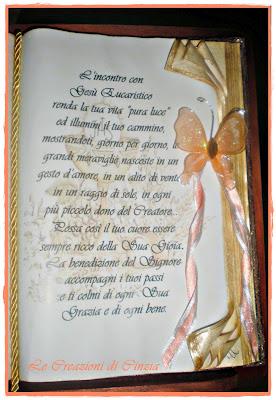 L'incontro con
Gesù Eucaristico
renda la tua vita "pura luce"
ed illumini il tuo cammino,
mostrandoti, giorno per giorno, le
grandi meraviglie nascoste in un
gesto d'amore, in un alito di vento,
in un raggio di sole, in ogni
più piccolo dono del Creatore...
Possa così il tuo cuore essere
sempre ricco della Sua Gioia.
La benedizione del Signore
accompagni i tuoi passi
e ti colmi di ogni Sua
Grazia e di ogni bene.
Le Creazioni di Cinzia